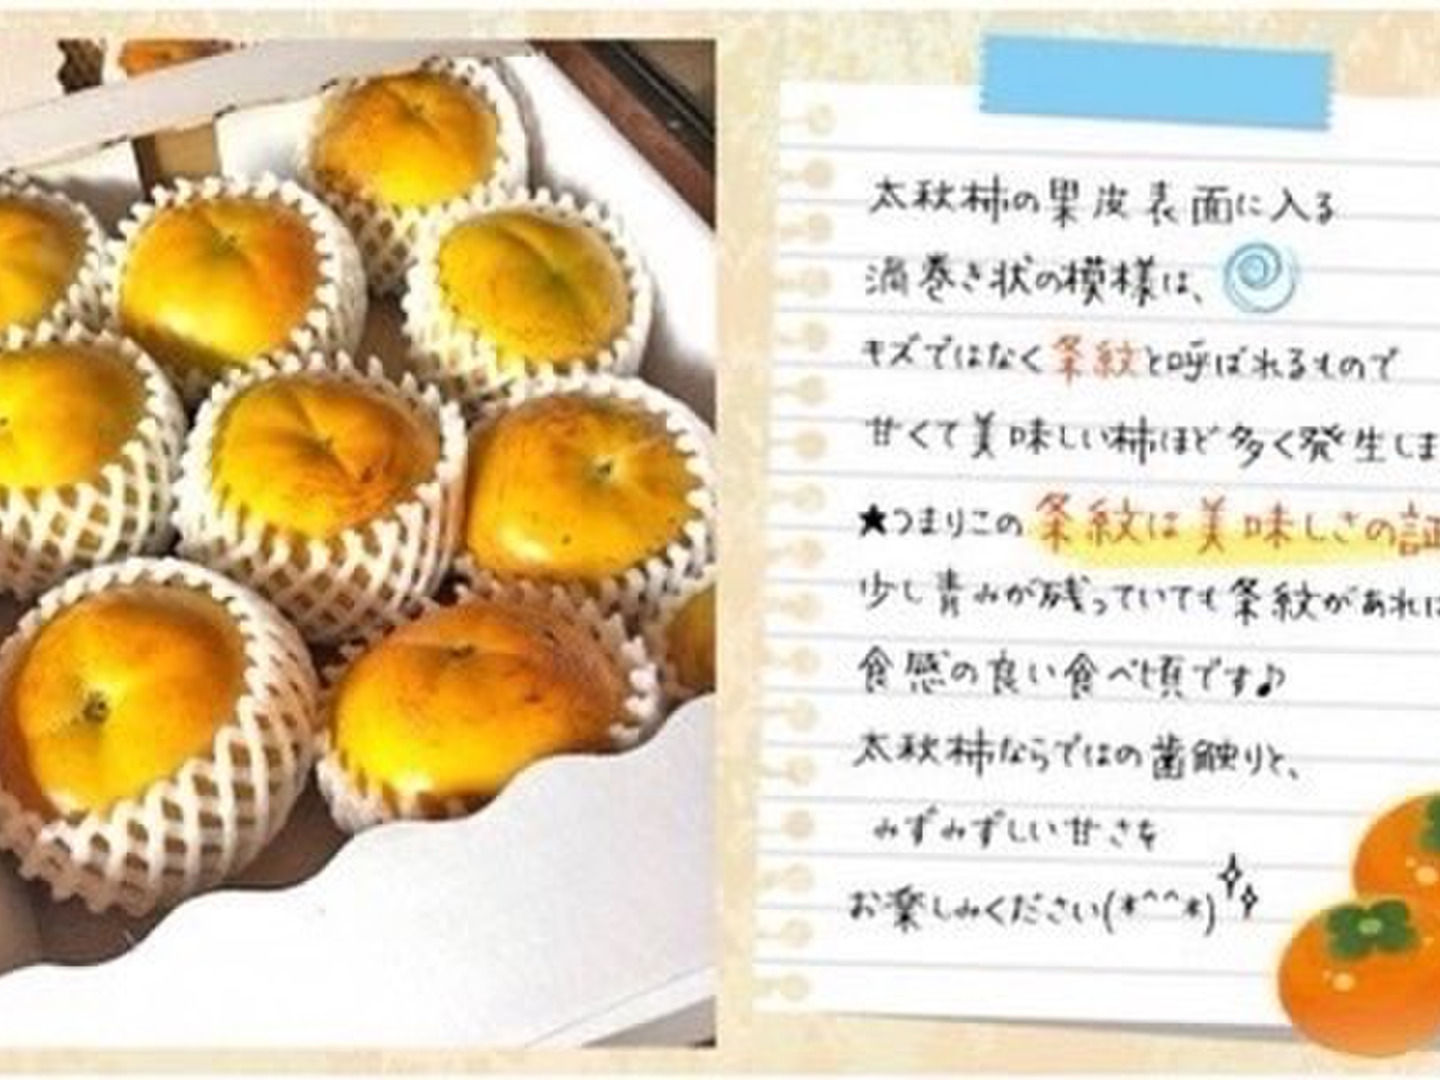 太秋柿の果皮表面に入る
渦巻き状の模様は、
キズではなく条紋と呼ばれるもので
甘くて美味しい柿ほど多く発生しま
★つまりこの条紋は美味しさの証
少し青みが残っていても条紋があれば
食感の良い食べ頃です♪
太秋柿ならではの歯触りと、
みずみずしい甘さを
お楽しみください(*^^*)